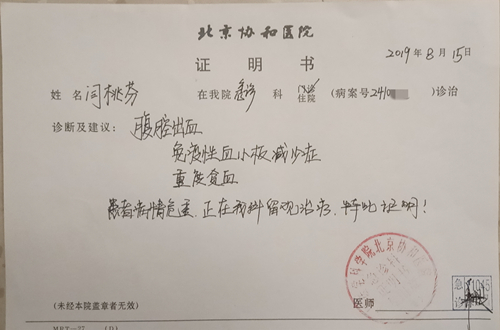 北京协和医院
2019年8月15日
证明书
姓名 闫桃芬 在我院 急诊 科 门诊 住院 (病案号 24/0 )诊治
诊断及建议： 腹腔出血
免疫性血小板减少症
重度贫血
患者病情危重，正在我科留观治疗，特此证明！
学院北京协和
医师
(未经本院盖章者无效)